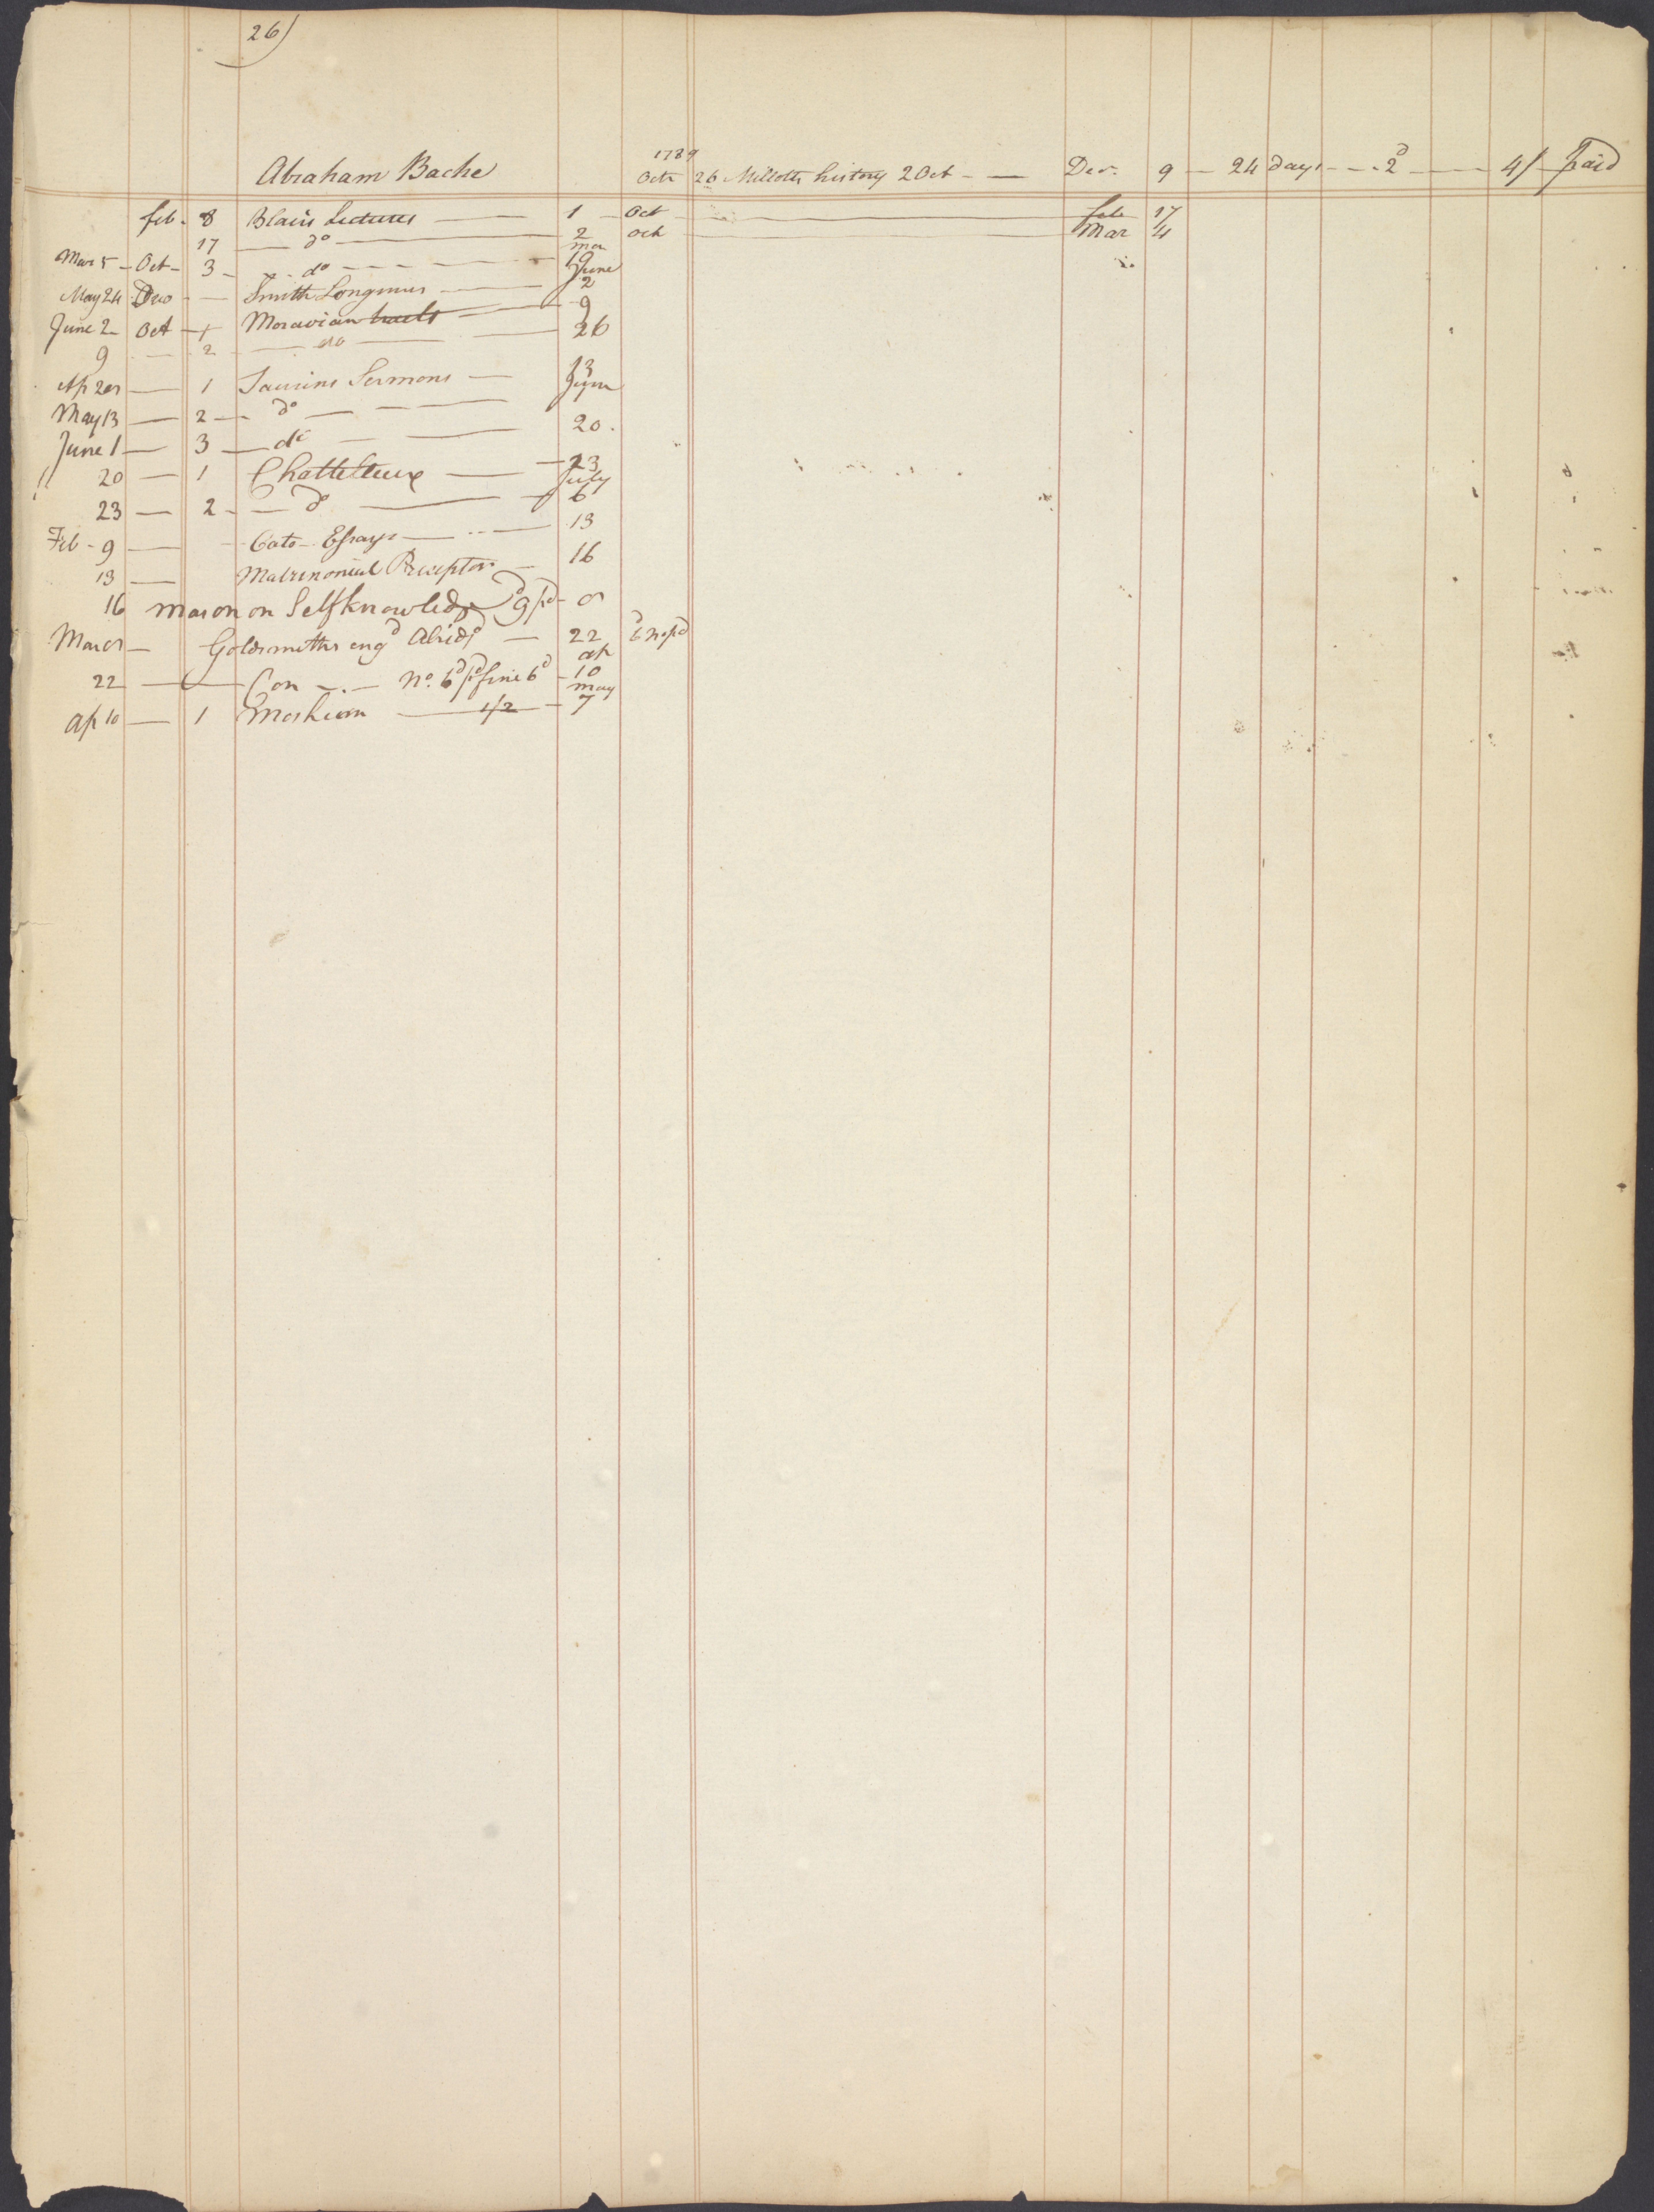 26)
1789
Abraham Bache Octr 26 Millotts history 2 Oct - - Decr. 9 - 24 days - - - 2d - 4/ - paid
feb. 8 Blairs Lectures 1 Oct feb 17
17 do 2 Oct Mar 4
Mar 5 - Oct - 3 - do - - - mar 19
May 24 Duo - Smith Longinus - June 2
June 2 - Oct - 1 Moravian tracts - 9
9 - 2 - do - 26
Ap - 1 Saurins Sermons - 13
May 13 - 2 - do - June
June 1 - 3 - do - 20.
20 - 1 Chattelleux - 23
23 - 2 - do - July 6
Feb - 9 - Cato - Essays - 13
13 - Matrimonial Preceptor - 16
16 mason on Selfknowledge 9d pd -
Mar - Goldsmiths engd Abridgd - 22 6d no pd
22 - Con - . - No. 6d pd fine 6d - ap 10
Ap 10 - 1 Mosheim - 1/2 - may 7